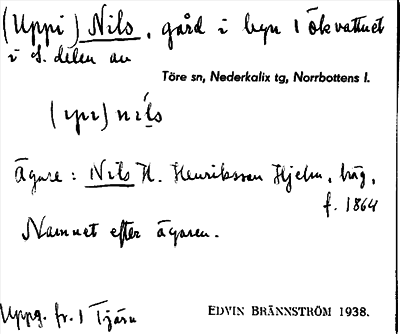 (Uppi) Nils, gård i byn 1 Ökvattnet
i S. delen av
Töre sn, Nederkalix tg, Norrbottens l.
(ɩpɩ) nɩls
Ägare: Nils H. Henriksson Hjelm,
f. 1864
Namnet efter ägaren.
Uppg. fr. 1 Tjärn
EDVIN BRÄNNSTRÖM 1938.